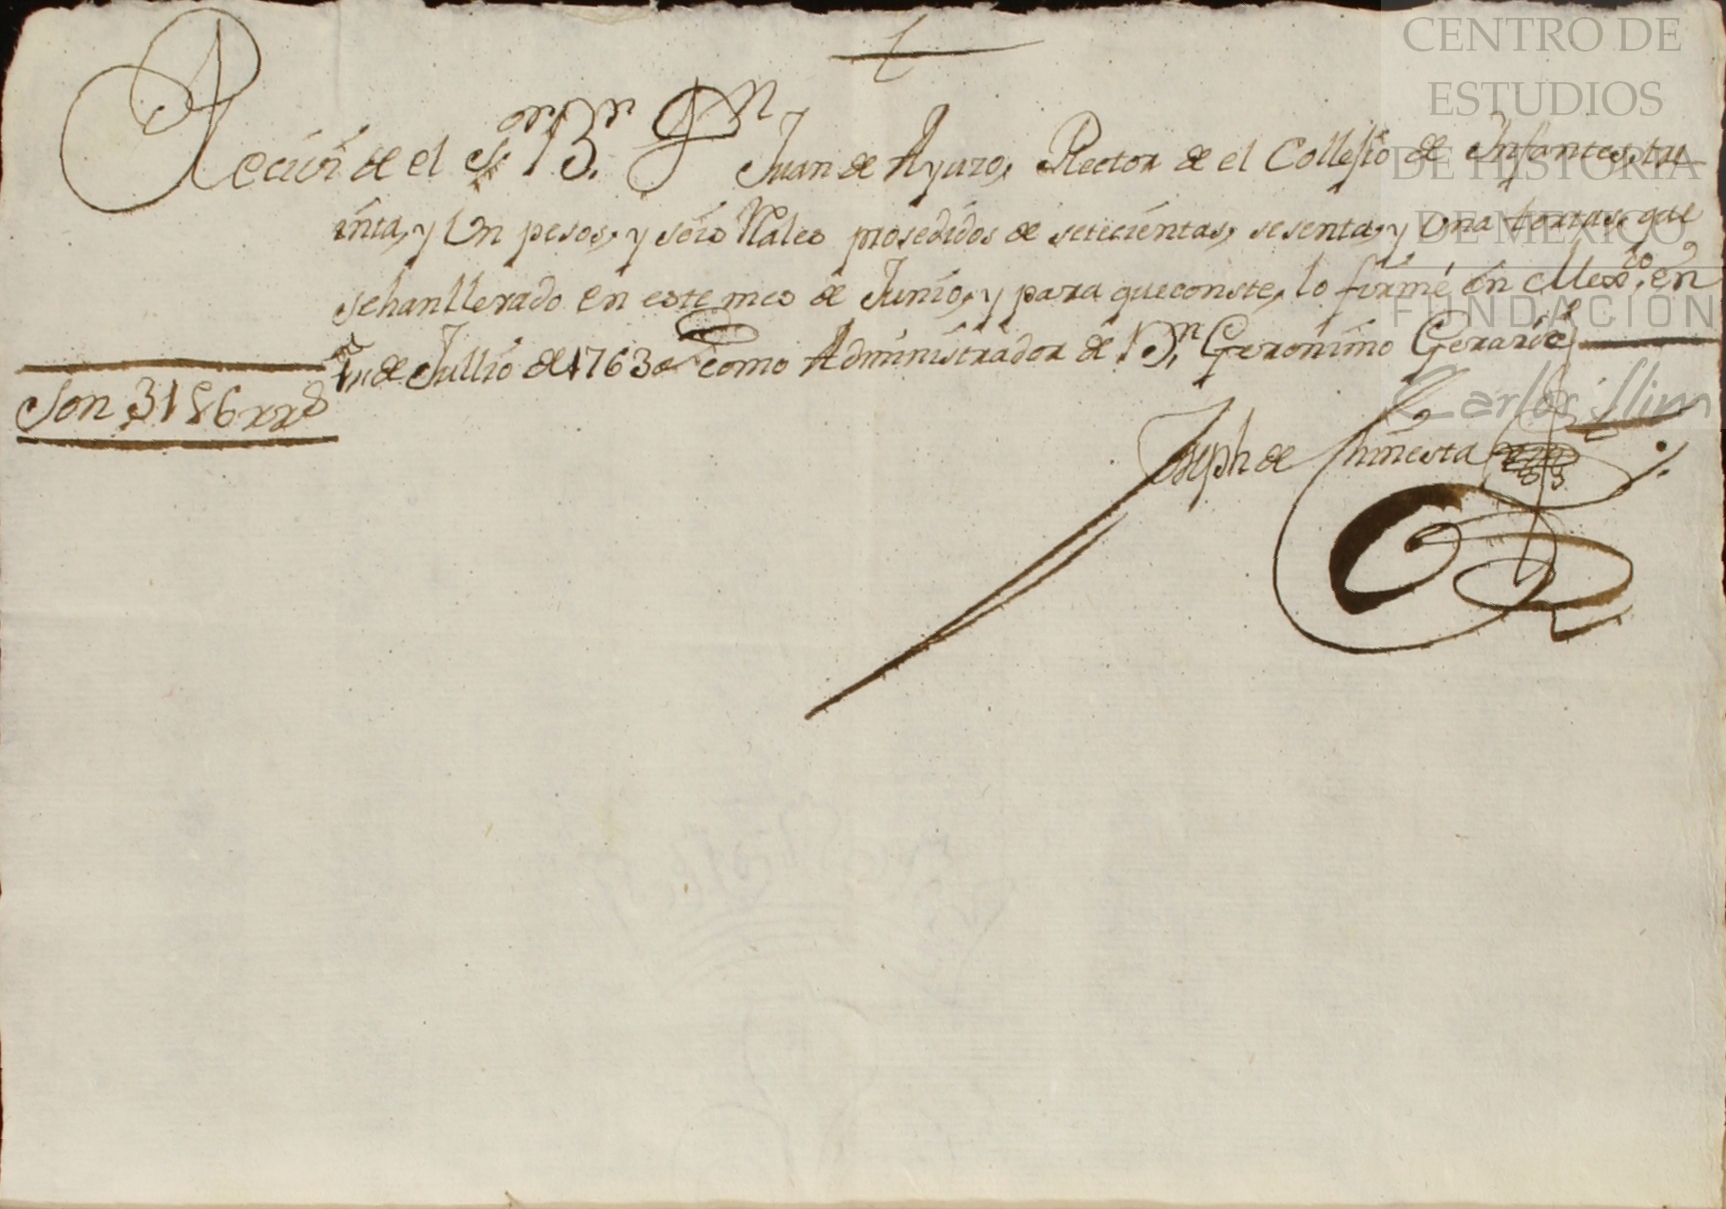 CENTRO DE
ESTUDIOS
DE HISTORIA
DE MÉXICO
FUNDACIÓN
Carlos Slim
Recivi de el Sor. Br. Dn Juan de Ayuzo, Rector de el Collesio de Infantes, tre
inta, y Un pesos, y seis Rales prosedidos de setecientas, sesenta, y Una tortas, que
sehanllevado en este mes de Junio, y para queconste, lo firmé en Mexco. en
de Jullio de 1763 como Administrador de Dn. Geronimo Gerarde
Son 31 p 6 rrs
Joseph de Thinesta